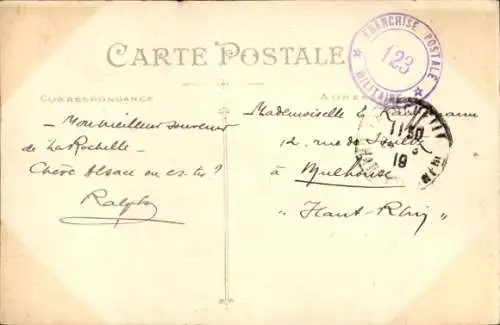 CARTE POSTALE
FRANCHISE POSTALE
123
MILITAIRE
CORRESPONDANCE
— Mon meilleur souvenir
de La Rochelle —
Chère Alsace en es-tu ?
Ralph
Mademoiselle
12, rue de
à Mulhouse
"Haut-Rhin
11 30
19